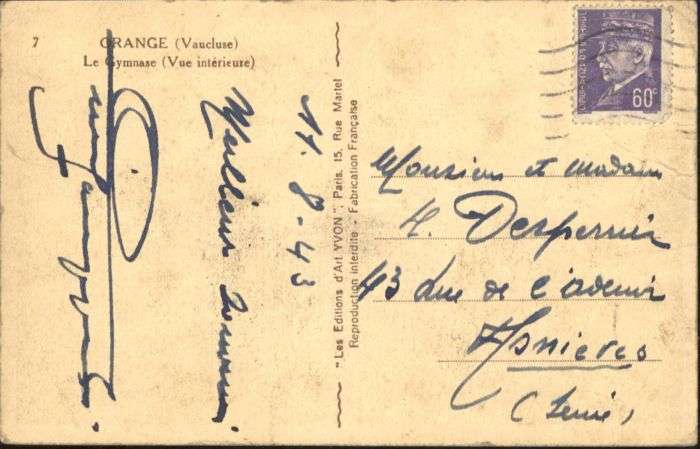 7
ORANGE (Vaucluse)
Le Gymnase (Vue intérieure)
11.8-43
Meilleur souvenir
"Les Editions d'Art YVON", Paris, 15, Rue Martel
Reproduction interdite - Fabrication Française
60c
Monsieur et madame
Despernier
43 Rue de l'avenir
Asnieres
(Seine)